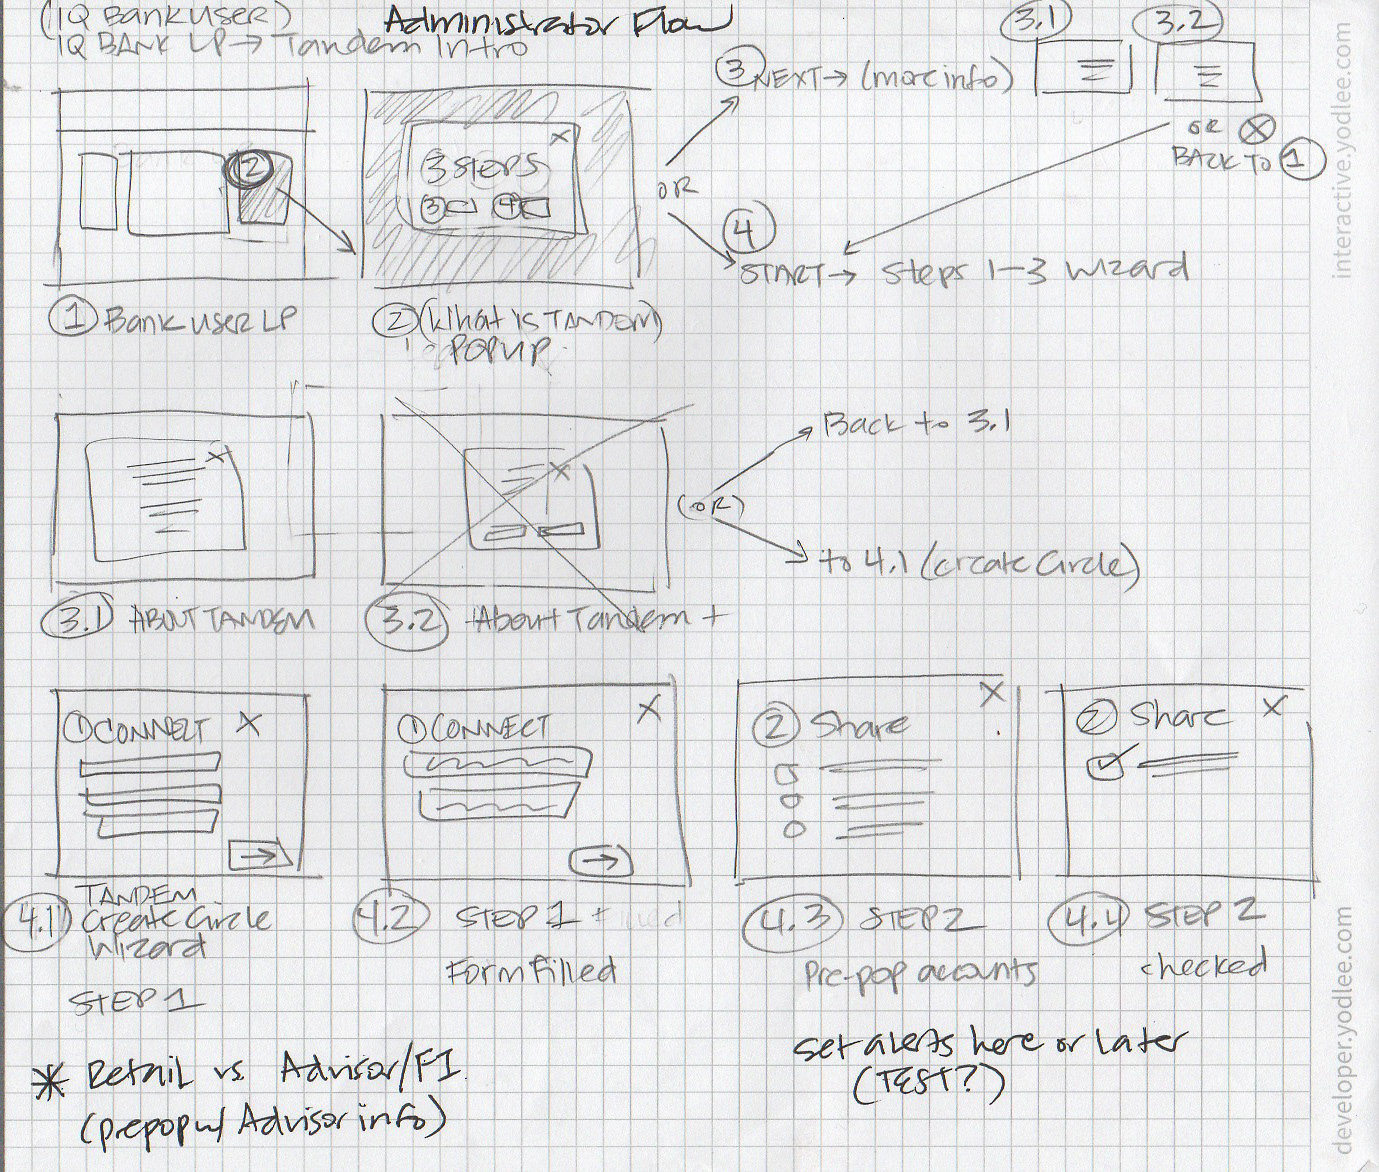 (IQ BANK USER)
Administrator Flow
IQ BANK LP → Tandem Intro
3.1
3.2
3 NEXT → (more info)
OR X
BACK TO 1
2
X
3 STEPS
3 4
OR
4
START → Steps 1-3 Wizard
1 Bank USER LP
2 (What IS TANDEM)
POPUP
X
X
Back to 3.1
(OR)
to 4.1 (create Circle)
3.1 ABOUT TANDEM
3.2 About Tandem +
1 CONNECT X
1 CONNECT X
2 Share X
2 Share X
4.1 TANDEM
Create Circle
Wizard
STEP 1
4.2 STEP 1 + filled
Form Filled
4.3 STEP 2
Pre-pop accounts
4.4 STEP 2
checked
Set alerts here or later
(TEST?)
* Retail vs. Advisor/FI
(prepop w/ Advisor info)
interactive.yodlee.com
developer.yodlee.com